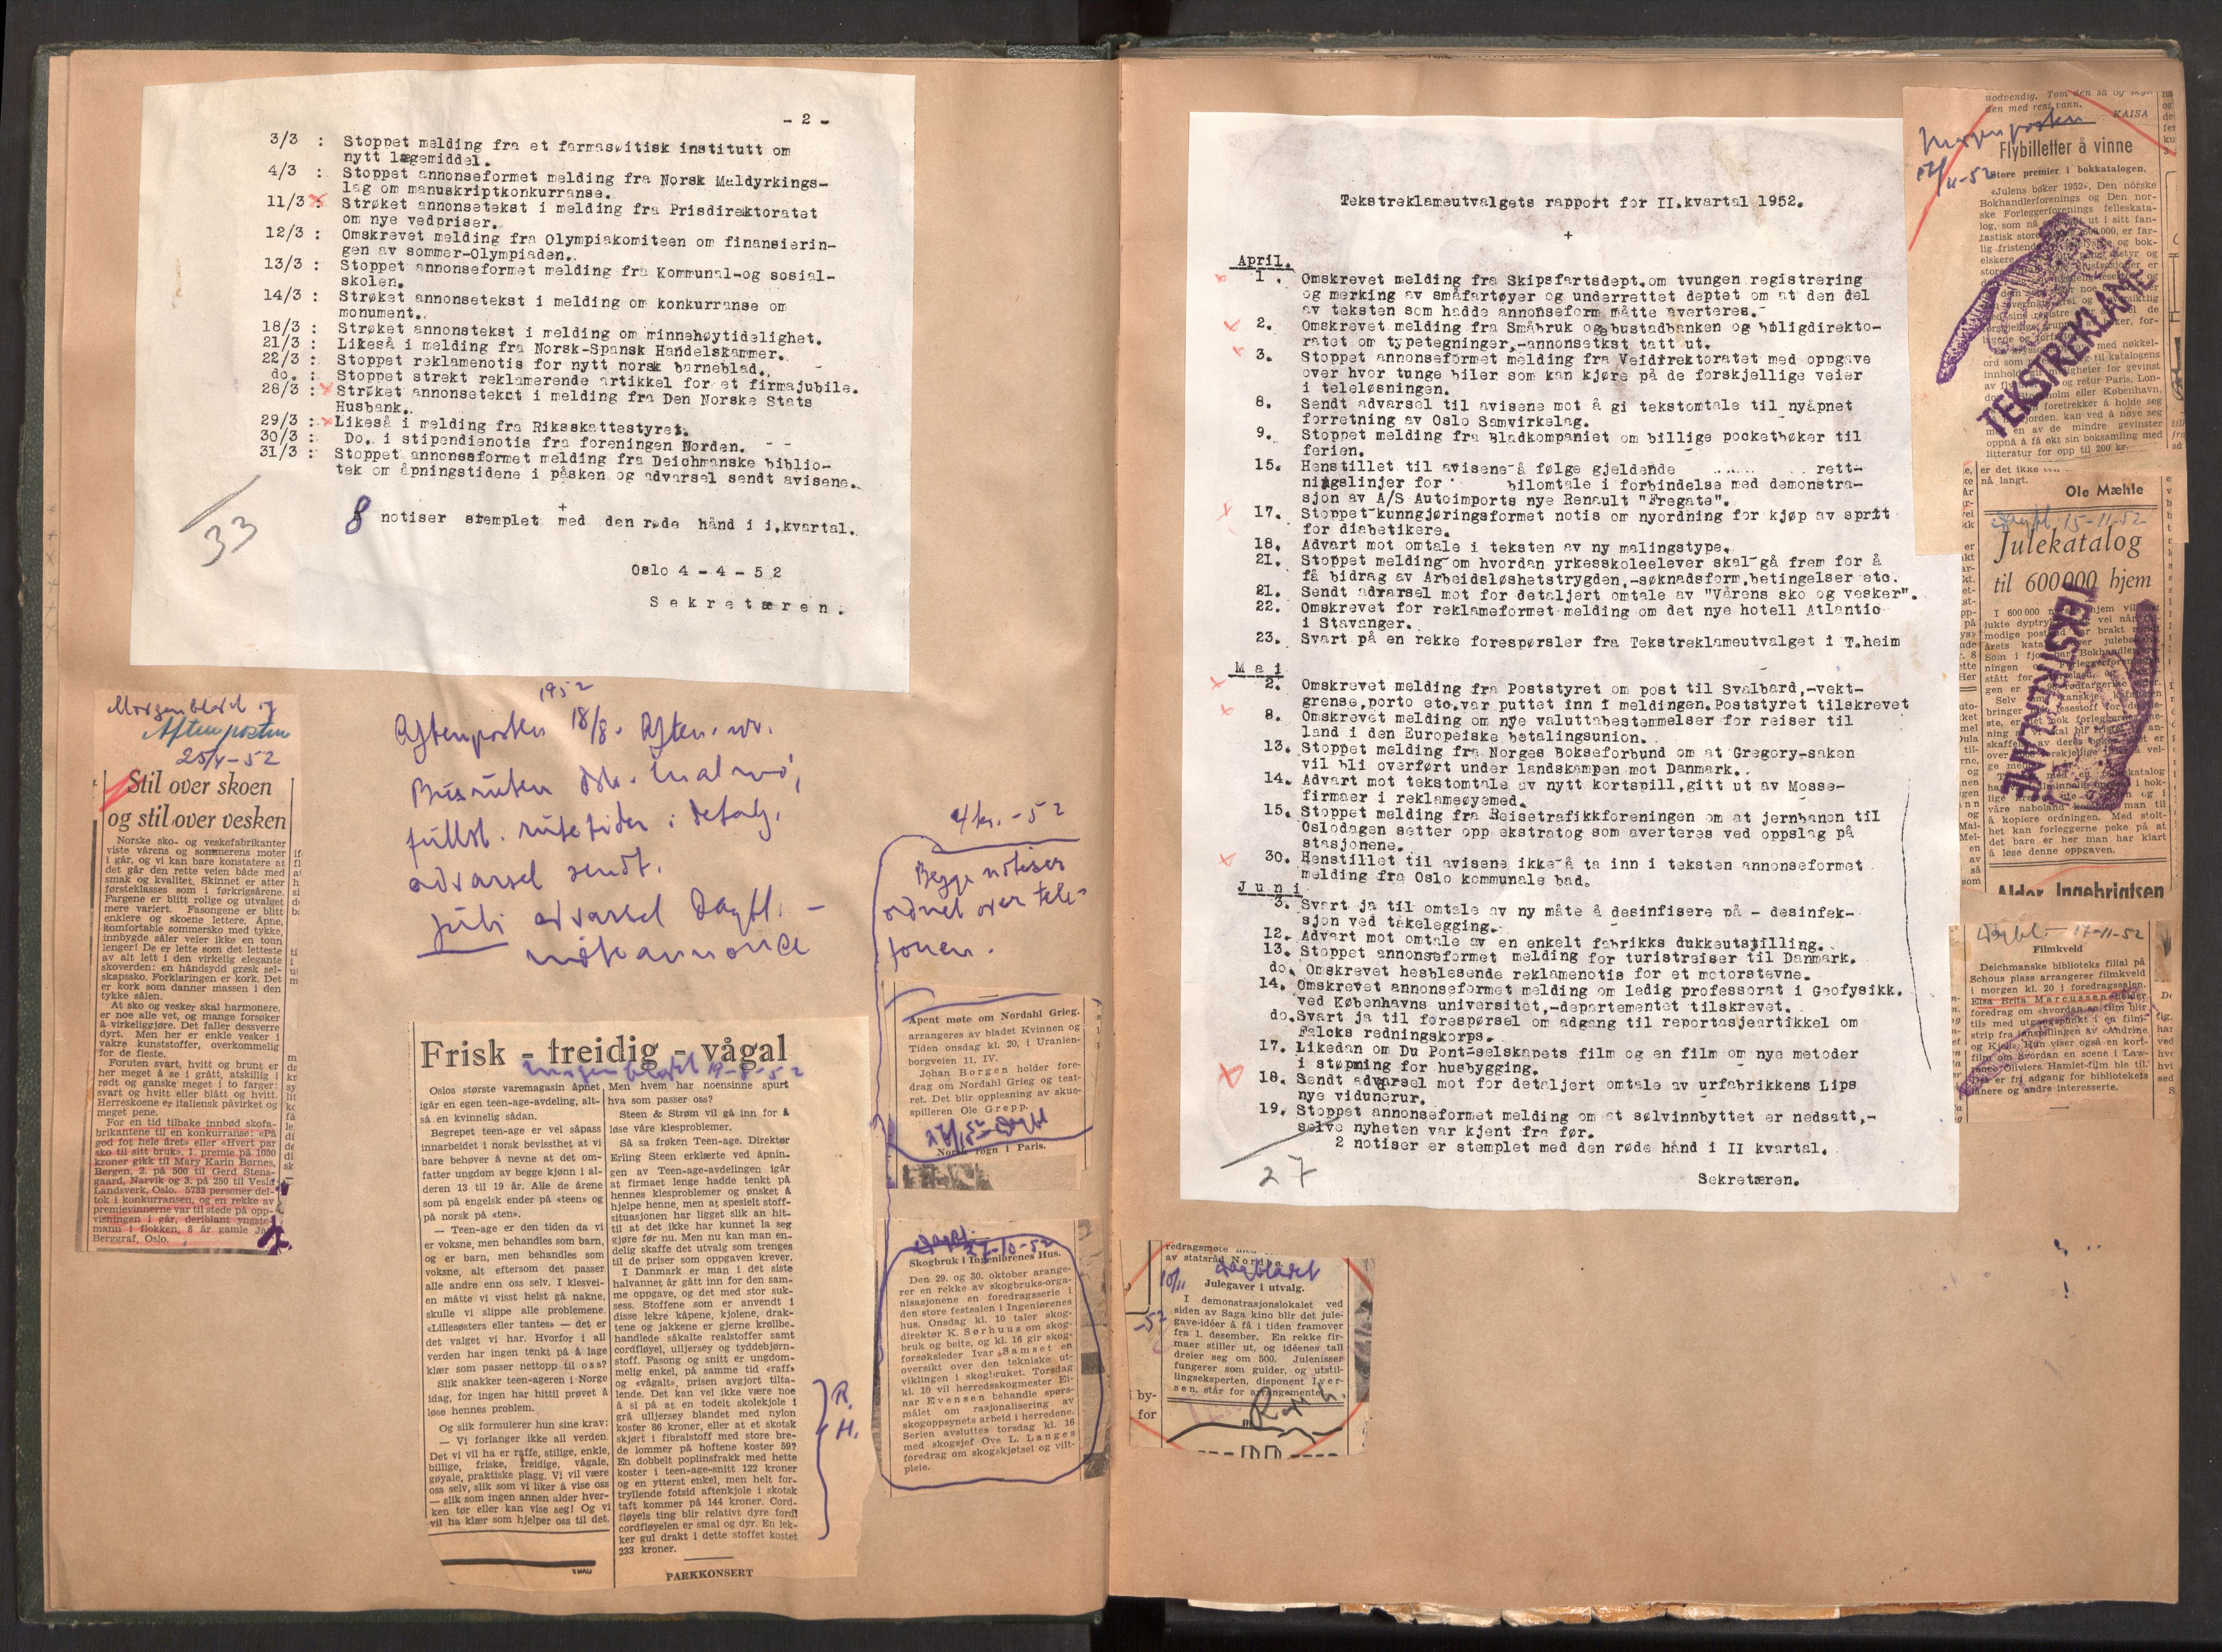 - 2 -
3/3 : Stoppet melding fra et farmasøitisk institutt om
nytt lægemiddel.
4/3 : Stoppet annonseformet melding fra Norsk Maldyrkings-
lag om manuskriptkonkurranse.
11/3 : Strøket annonsetekst i melding fra Prisdirektoratet
om nye vedpriser.
12/3 : Omskrevet melding fra Olympiakomiteen om finansierin-
gen av sommer-Olympiaden.
13/3 : Stoppet annonseformet melding fra Kommunal-og sosial-
skolen.
14/3 : Strøket annonsetekst i melding om konkurranse om
monument.
18/3 : Strøket annonstekst i melding om minnehøytidelighet.
21/3 : Likeså i melding fra Norsk-Spansk Handelskammer.
22/3 : Stoppet reklamenotis for nytt norsk barneblad.
do. : Stoppet strekt reklamerende artikkel for et firmajubile.
28/3 : Strøket annonsetekst i melding fra Den Norske Stats
Husbank.
29/3 : Likeså i melding fra Riksskattestyret.
30/3 : Do. i stipendienotis fra foreningen Norden.
31/3 : Stoppet annonseformet melding fra Deichmanske biblio-
tek om åpningstidene i påsken og advarsel sendt avisene.
+
8 notiser stemplet med den røde hånd i i.kvartal.
33
Oslo 4 - 4 - 5 2
S e k r e t æ r e n .
Morgenbladet og
Aftenposten
25/4-52
Stil over skoen
og stil over vesken
Norske sko- og veskefabrikanter
viste vårens og sommerens moter
i går, og vi kan bare konstatere at
det går den rette veien både med
smak og kvalitet. Skinnet er atter
førsteklasses som i førkrigsårene.
Fargene er blitt rolige og utvalget
mere variert. Fasongene er blitt
enklere og skoene lettere. Åpne,
komfortable sommersko med tykke,
innbygde såler veier ikke en tonn
lenger! De er lette som det letteste
av alt lett i den virkelig elegante
skoverden: en håndsydd gresk sel-
skapssko. Forklaringen er kork. Det
er kork som danner massen i den
tykke sålen.
At sko og vesker skal harmonere,
er noe alle vet, og mange forsøker
å virkeliggjøre. Det faller dessverre
dyrt. Men her er enkle vesker i
vakre kunststoffer, overkommelig
for de fleste.
Foruten svart, hvitt og brunt er
her meget å se i grått, atskillig i
rødt og ganske meget i to farger:
svart og hvitt eller blått og hvitt.
Herreskoene er italiensk påvirket og
meget pene.
For en tid tilbake innbød skofa-
brikantene til en konkurranse: «På
god fot hele året» eller «Hvert par
sko til sitt bruk», 1. premie på 1000
kroner gikk til Mary Karin Børnes,
Bergen, 2. på 500 til Gerd Stens-
gaard, Narvik og 3. på 250 til Vesla
Landsverk, Oslo. 5733 personer del-
tok i konkurransen, og en rekke av
premievinnerne var til stede på opp-
visningen i går, deriblant yngste-
mann i flokken, 8 år gamle Ja
Berggraf, Oslo.
1952
Aftenposten 18/8. Aften.nr.
Bussruten Oslo-Malmø,
fullst. rutetider i detalj.
advarsel sendt.
juli advarsel Dagbl. -
møteannonce
4 kv. - 52
Begge notiser
ordnet over tele-
fonen.
Frisk - freidig - vågal
Morgenbladet 19-8-52
Oslos største varemagasin åpnet
igår en egen teen-age-avdeling, alt-
så en kvinnelig sådan.
Begrepet teen-age er vel såpass
innarbeidet i norsk bevissthet at vi
bare behøver å nevne at det om-
fatter ungdom av begge kjønn i al-
deren 13 til 19 år. Alle de årene
som på engelsk ender på «teen» og
på norsk på «ten».
— Teen-age er den tiden da vi
er voksne, men behandles som barn,
og er barn, men behandles som
voksne, alt eftersom det passer
alle andre enn oss selv. I klesvei-
en måtte vi visst helst gå nakne,
skulle vi slippe alle problemene.
«Lillesøsters eller tantes» — det er
det valget vi har. Hvorfor i all
verden har ingen tenkt på å lage
klær som passer nettopp til oss?
Slik snakker teen-ageren i Norge
idag, for ingen har hittil prøvet å
løse hennes problem.
Og slik formulerer hun sine krav:
— Vi forlanger ikke all verden.
Det vi vil ha er raffe, stilige, enkle,
billige, friske, freidige, vågale,
gøyale, praktiske plagg. Vi vil være
oss selv, slik som vi liker å vise oss
— slik som ingen annen alder hver-
ken tør eller kan vise seg! Og vi
vil ha klær som hjelper oss til det.
Men hvem har noensinne spurt
hva som passer oss?
Steen & Strøm vil gå inn for å
løse våre klesproblemer.
Så sa frøken Teen-age. Direktør
Erling Steen erklærte ved åpnin-
gen av Teen-age-avdelingen igår
at firmaet lenge hadde tenkt på
hennes klesproblemer og ønsket å
hjelpe henne, men at spesielt stoff-
situasjonen har ligget slik an hit-
til at det ikke har kunnet la seg
gjøre før nu. Men nu kan man en-
delig skaffe det utvalg som trenges
til de priser som oppgaven krever.
I Danmark er man i det siste
halvannet år gått inn for den sam-
me oppgave, og det med stor suk-
sess. Stoffene som er anvendt i
disse lekre kåpene, kjolene, drak-
tene og jakkene er gjerne krøllbe-
handlede såkalte realstoffer samt
cordfløyel, ulljersey og tyddebjørn-
stoff. Fasong og snitt er ungdom-
melig enkel, på samme tid «raff»
og «vågalt», prisen avgjort tilta-
lende. Det kan vel ikke være noe
å si på at en todelt skolekjole i
grå ulljersey blandet med nylon
koster 86 kroner, eller at et skotsk
skjørt i fibralstoff med store bre-
de lommer på hoftene koster 59?
En dobbelt poplinsfrakk med hette
koster i teen-age-snitt 122 kroner
og en ytterst enkel, men helt for-
tryllende fotsid aftenkjole i skotsk
taft kommer på 144 kroner. Cord-
fløyels ting blir relativt dyre fordi
cordfløyelen er smal og dyr. En lek-
ker gul drakt i dette stoffet kostet
233 kroner.
R.
H.
PARKKONSERT
Åpent møte om Nordahl Grieg.
arrangeres av bladet Kvinnen og
Tiden onsdag kl. 20, i Uranien-
borgveien 11, IV.
Johan Borgen holder fore-
drag om Nordahl Grieg og teat-
ret. Det blir opplesning av skue-
spilleren Ole Grepp.
Norsk rogn i Paris.
Dagbl.
27-10-52
Skogbruk i Ingeniørenes Hus.
Den 29. og 30. oktober arange-
rer en rekke av skogbruks-orga-
nisasjonene en foredragsserie i
den store festsalen i Ingeniørenes
hus. Onsdag kl. 10 taler skog-
direktør K. Sørhuus om skog-
bruk og beite, og kl. 16 gir skog-
forsøksleder Ivar Samset en
oversikt over den tekniske ut-
viklingen i skogbruket. Torsdag
kl. 10 vil herredsskogmester Ei-
nar Evensen behandle spørs-
målet om rasjonalisering av
skogoppsynets arbeid i herredene.
Serien avsluttes torsdag kl. 16
med skogsjef Ove L. Langes
foredrag om skogskjøtsel og vilt-
pleie.
Tekstreklameutvalgets rapport for II.kvartal 1952.
+
April.
1. Omskrevet melding fra Skipsfartsdept.om tvungen registrering
og merking av småfartøyer og underrettet deptet om at den del
av teksten som hadde annonseform måtte averteres.
2. Omskrevet melding fra Småbruk og bustadbanken og boligdirekto-
ratet om typetegninger,-annonsetkst tatt ut.
3. Stoppet annonseformet melding fra Veidirektoratet med oppgave
over hvor tunge biler som kan kjøre på de forskjellige veier
i teleløsningen.
8. Sendt advarsel til avisene mot å gi tekstomtale til nyåpnet
forretning av Oslo Samvirkelag.
9. Stoppet melding fra Bladkompaniet om billige pocketbøker til
ferien.
15. Henstillet til avisene å følge gjeldende rett-
ningslinjer for bilomtale i forbindelse med demonstra-
sjon av A/S Autoimports nye Renault "Fregate".
17. Stoppet kunngjøringsformet notis om nyordning for kjøp av sprit
for diabetikere.
18. Advart mot omtale i teksten av ny malingstype.
21. Stoppet melding om hvordan yrkesskoleelever skal gå frem for å
få bidrag av Arbeidsløshetstrygden,-søknadsform,betingelser etc.
21. Sendt advarsel mot for detaljert omtale av "Vårens sko og vesker".
22. Omskrevet for reklameformet melding om det nye hotell Atlantic
i Stavanger.
23. Svart på en rekke forespørsler fra Tekstreklameutvalget i T.heim
M a i
2. Omskrevet melding fra Poststyret om post til Svalbard,-vekt-
grense,porto etc.var puttet inn i meldingen.Poststyret tilskrevet
8. Omskrevet melding om nye valuttabestemmelser for reiser til
land i den Europeiske betalingsunion.
13. Stoppet melding fra Norges Bokseforbund om at Gregory-saken
vil bli overført under landskampen mot Danmark.
14. Advart mot tekstomtale av nytt kortspill,gitt ut av Mosse-
firmaer i reklameøyemed.
15. Stoppet melding fra Reisetrafikkforeningen om at jernbanen til
Oslodagen setter opp ekstratog som averteres ved oppslag på
stasjonene.
30. Henstillet til avisene ikke å ta inn i teksten annonseformet
melding fra Oslo kommunale bad.
J u n i
3. Svart ja til omtale av ny måte å desinfisere på - desinfek-
sjon ved tåkelegging.
12. Advart mot omtale av en enkelt fabrikks dukkeutstilling.
13. Stoppet annonseformet melding for turistreiser til Danmark.
do. Omskrevet hesblesende reklamenotis for et motorstevne.
14. Omskrevet annonseformet melding om ledig professorat i Geofysikk.
ved Københavns universitet,-departementet tilskrevet.
do. Svart ja til forespørsel om adgang til reportasjeartikkel om
Falcks redningskorps.
17. Likedan om Du Pont-selskapets film og en film om nye metoder
i støpning for husbygging.
18. Sendt advarsel mot for detaljert omtale av urfabrikkens Lips
nye vidunerur.
19. Stoppet annonseformet melding om at sølvinnbyttet er nedsatt,-
selve nyheten var kjent fra før.
2 notiser er stemplet med den røde hånd i II kvartal.
27
Sekretæren.
av statsråd Nordbø.
10/11 Dagbladet
-52
Julegaver i utvalg.
I demonstrasjonslokalet ved
siden av Saga kino blir det jule-
gave-idéer å få i tiden framover
fra 1. desember. En rekke fir-
maer stiller ut, og idéenes tall
dreier seg om 500. Julenisser
fungerer som guider, og utstil-
lingseksperten, disponent Iver-
sen, står for arrangementet.
i by-
for
nødvendig. Tøm den så og skyll
den med rent vann.
KAISA
Morgenposten
Flybilletter å vinne
Store premier i bokkatalogen.
«Julens bøker 1952». Den norske
Bokhandlerforenings og Den nor-
ske Forleggerforenings felleskata-
TEKSTREKLAME
av fly
og retur Paris, Lon-
holm eller København.
foretrekker å holde seg
jorden, kan ved å nøye seg
med en av de mindre gevinster
oppnå å få økt sin boksamling med
litteratur for opp til 200 kr.
nå langt.
Ole Mæhle
Dagbl. 15-11-52
Julekatalog
til 600000 hjem
TEKSTREKLAME
å kopiere ordningen. Med stolt-
het kan forleggerne peke på at
det bare er her man har klart
å løse denne oppgaven.
Alder Ingebrigtsen
Dagbl. - 17-11-52
Filmkveld
Deichmanske biblioteks filial på
Schous plass arrangerer filmkveld
i morgen kl. 20 i foredragssalen.
Elsa Brita Marcussen holder
foredrag om «hvordan en film blir
til» med utgangspunkt i en film-
strip fra innspillingen av «Andrine
og Kjell». Hun viser også en kort-
film om hvordan en scene i Law-
rence Oliviers Hamlet-film ble til.
Det er fri adgang for bibliotekets
lånere og andre interesserte.